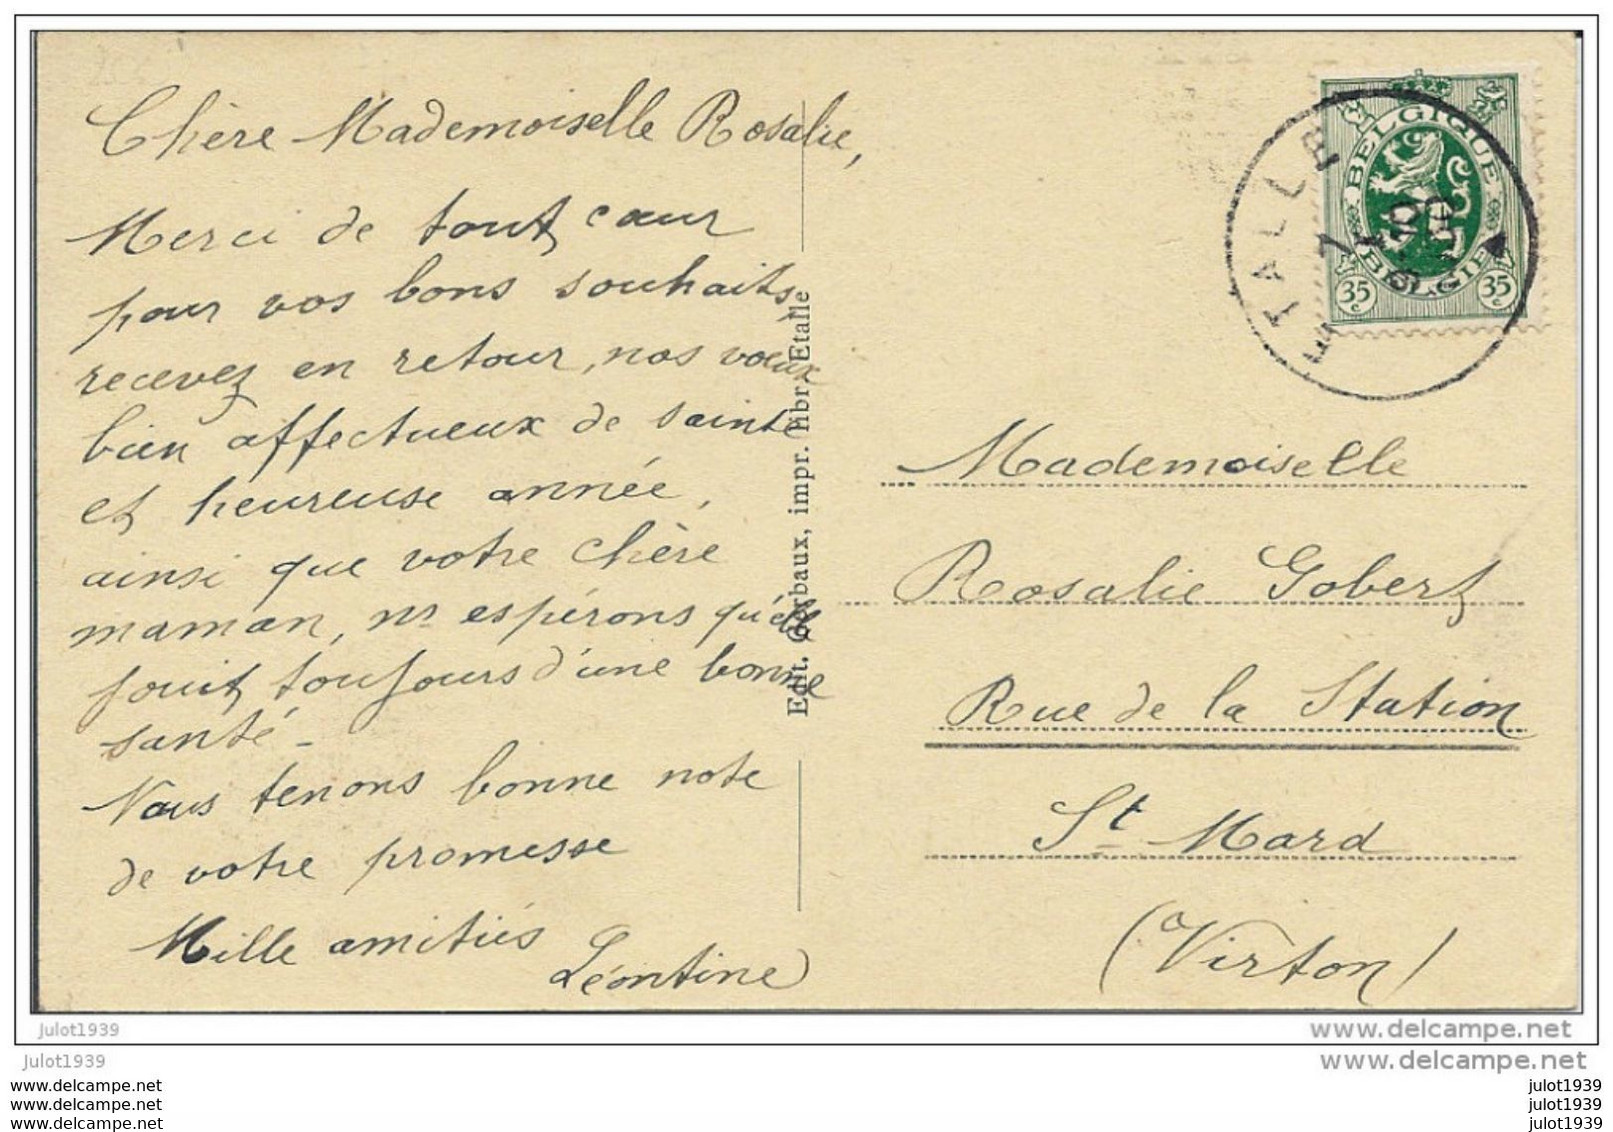 Chère Mademoiselle Rosalie,
Merci de tout cœur
pour vos bons souhaits,
recevez en retour, nos vœux
bien affectueux de sainte
et heureuse année,
ainsi que votre chère
maman, ns espérons qu'elle
jouit toujours d'une bonne
santé -
Nous tenons bonne note
de votre promesse
Mille amitiés
Léontine
Edit. Gerbaux, impr. libr. Etalle
ETALLE
BELGIQUE
BELGIE
35 c
35 c
Mademoiselle
Rosalie Gobert
Rue de la Station
St Mard
(Virton)
julot1939
www.delcampe.net
julot1939
www.delcampe.net
www.delcampe.net
www.delcampe.net
www.delcampe.net
julot1939
julot1939
julot1939